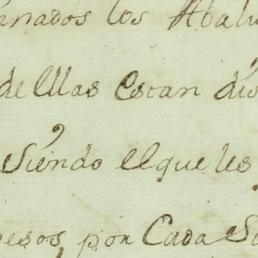 nados los Abalu
de Ellas Estan dis
Siendo el que les
pesos por Cada Sa